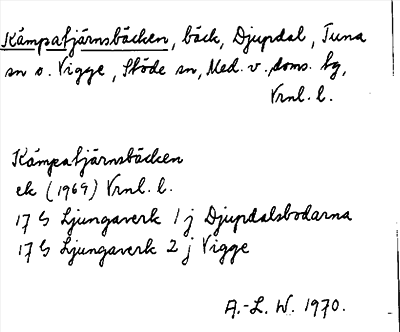 Kämpatjärnsbäcken, bäck, Djupdal, Tuna
sn o. Vigge, Stöde sn, Med. v. doms. tg,
Vrnl. l.
Kämpatjärnsbäcken
ek (1969) Vrnl. l.
17 G Ljungaverk 1 j Djupdalsbodarna
17 G Ljungaverk 2 j Vigge
A.-L. W. 1970.